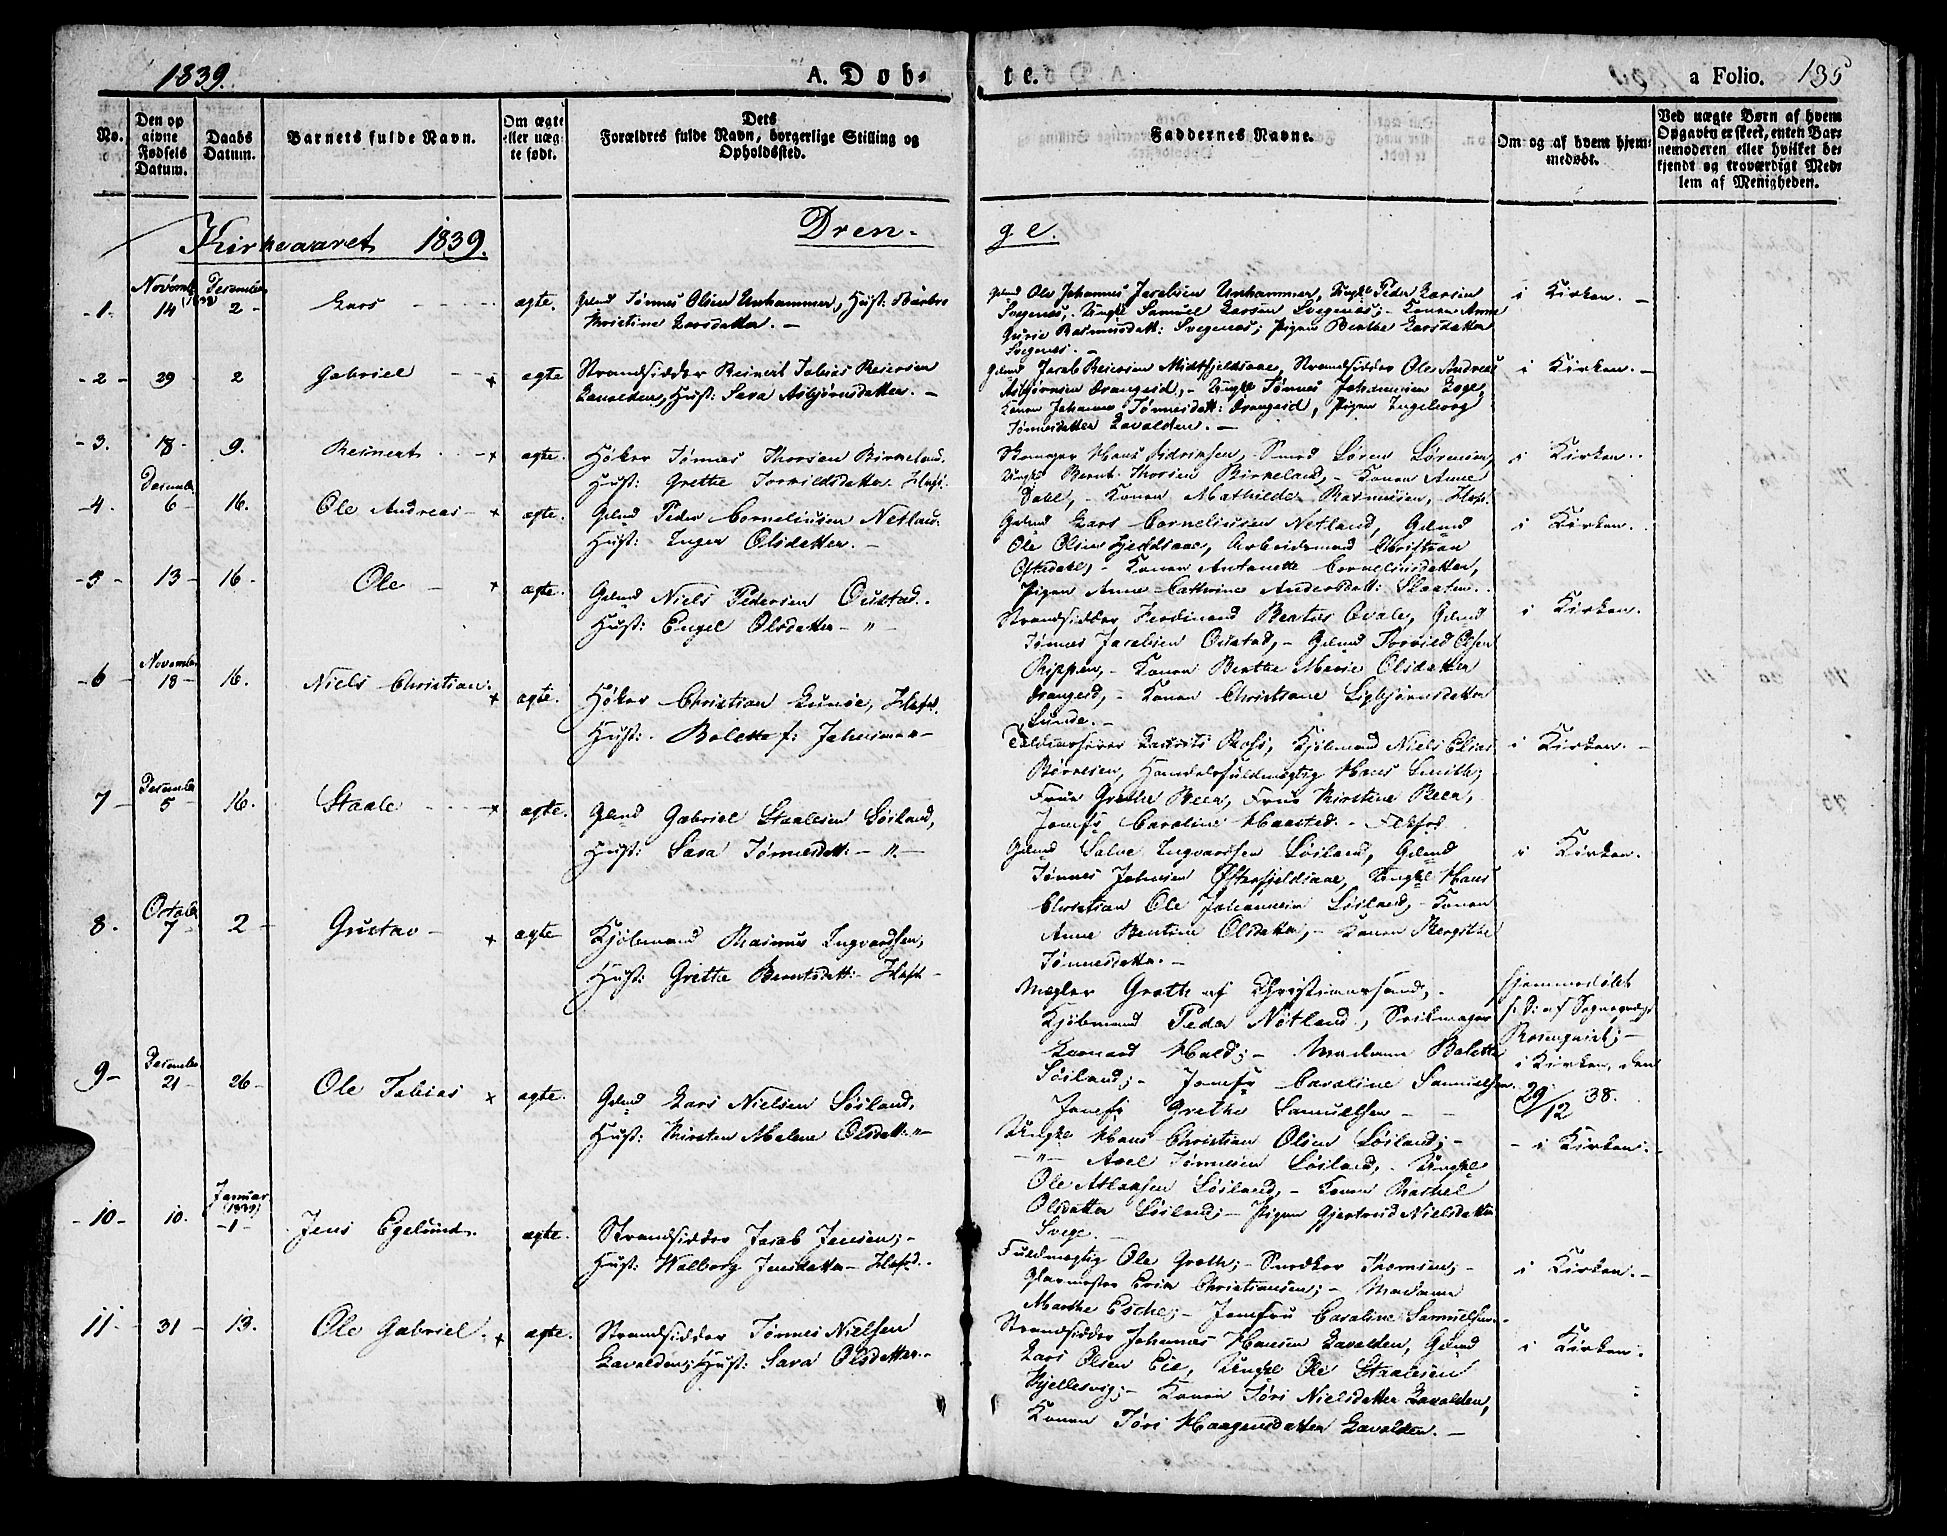 1839.
A. Dob-
te.
a Folio. 135
No.
Den op
givne
Fødsels
Datum.
Daabs
Datum.
Barnets fulde Navn.
Om ægte
eller uæg-
te født.
Dets
Forældres fulde Navn, borgerlige Stilling og
Opholdssted.
Faddernes Navne.
Om og af hvem hjem-
medøbt.
Ved uægte Børn af hvem
Opgaven er skeet, enten Bar-
nemoderen eller hvilket be-
kjendt og troværdigt Med-
lem af Menigheden.
Kirkeaaret 1839.
Dren-
ge.
-1-
November
14 (1838)
December
2-
Lars
ægte.
Gdmd Tønnes Olsen Unhammer, Hust. Barbro
Kirstine Larsdatter. -
Gdmd Ole Johannes Jacobsen Unhammer, Ungkl Peder Larsen
Svegenæs, Ungkl Samuel Larsen Svegenæs; - Konen Anne
Gurie Rasmusdatt: Svegenæs; Pigen Berthe Larsdatter
Svegenæs. -
i Kirken. -
-2-
29
2
Gabriel
ægte
Strandsidder Reinert Tobias Reiersen
Lavolden, Hust: Sara Asbjørnsdatter. -
Gdmd Jacob Reiersen Midtfjeldsaae, Strandsidder Ole Andreas
Asbjørnsen Drangeid, - Ungkl Tønnes Johannesen Loge,
Konen Johanne Tønnesdatt: Drangeid, Pigen Ingeborg
Tønnesdatter Lavolden. -
i Kirken. -
-3.
18-
9.
Reinert
ægte.
Høker Tønnes Thorsen Birkeland.
Hust: Grethe Torkildsdatter. Flekf.
Hans Didriksen, Smed Søren Sørensen,
Ungkl Bernt Thorsen Birkeland, - Konen Anne
Dahl, - Konen Mathilde Rasmusen, - Flekf.
i Kirken.
-4.
December
6
16.
Ole Andreas
ægte.
Gdmd Peder Corneliusen Netland.
Hust: Inger Olsdatter. -
Gdmd Lars Corneliussen Netland, Gdmd
Ole Olsen Fjeldsaae, Arbeidsmand Christian
Oftedahl, - Konen Antonette Corneliusdatter,
Pigen Anne Cathrine Andersdatt: Skaaten.
i Kirken.
-5-
13-
16-
Ole
ægte.
Gdmd Niels Pedersen Oustad.
Hust: Engel Olsdatter - " -
Strandsidder Ferdinand Beatus Qvale, Gdmd
Tønnes Jacobsen Oustad, - Gdmd Torkild Olsen
Rippen, - Konen Berthe Marie Olsdatter
Drangeid, - Konen Christiane Sigbjørnsdatter
Lunde. -
i Kirken.
-6-
November
18-
16.
Niels Christian.
ægte.
Høker Christian Lunde, Flekf.
Hust: Bolette f: Johnsen - " -
Laurits Ross, Kjøbmand Niels Elias
Børresen, Handelsfuldmægtig Hans Smith;
Frue Grethe Beer, Frue Kirstine Beer,
Jomfr Caroline Haasted. - Flekfrd
i Kirken. -
7-
December
5
16.
Staale
ægte.
Gdmd Gabriel Staalesen Løiland,
Hust: Sara Tønnesdatt: - " -
Gdmd Salve Ingvardsen Løiland, Gdmd
Tønnes Johnsen Østerfjeldsaae, Ungkl Hans
Christian Ole Johannesen Løiland; - Konen
Anne Bentine Olsdatter; - Konen Bergithe
Tønnesdatter. -
i Kirken.
8.
October
7
2-
Gustav -
ægte
Kjøbmand Rasmus Ingvardsen,
Hust: Grethe Berntsdatt: Flekf -
Mægler Groth af Christianssand; -
Kjøbmand Peder Nøtland,
Hald; - Madame Bolette
Løiland; - Jomfr Caroline Samuelsen
Jomfr Grethe Samuelsen -
hjemmedøbt
s. D: af Sognepræst
Rosenqvist; -
i Kirken, den
29/12 38.
9-
December
21
26-
Ole Tobias
ægte.
Gdmd Lars Nielsen Løiland,
Hust: Kirsten Malene Olsdatt: " -
Ungkl Hans Christian Olsen Løiland; -
- " - Axel Tønnesen Løiland, - Ungkl
Ole Atlaksen Løiland, - Konen Rachel
Olsdatter Løiland; - Pigen Gjertrud Nielsdatter
Svege. -
- i Kirken. -
-10-
10.
Januar
(1839)
-1-
Jens Egelund.
ægte.
Strandsidder Jacob Jensen; -
Hust: Walborg Jensdatter - Flekf.
Fuldmægtig Ole Groth; - Snedker Thomsen; -
Glarmester Erik Christiansen; - Madame
Marthe Esche; - Jomfru Caroline Samuelsen.
i Kirken. -
11-
31-
13.
Ole Gabriel.
ægte.
Strandsidder Tønnes Nielsen
Lavolden; Hust: Sara Olsdatter.
Strandsidder Johannes Hansen Lavolden, Gdmd
Lars Olsen Eie, Ungkl Ole Staalesen
Kjellesvig; - Konen Tøri Nielsdatter Lavolden,
Konen Tøri Haagensdatter Lavolden. -
i Kirken.